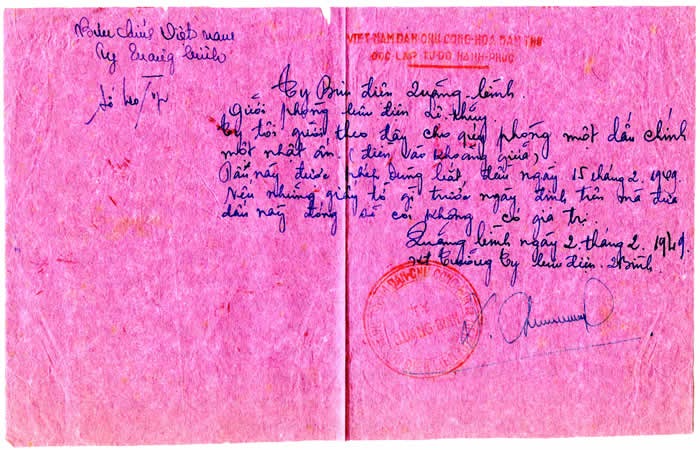 Bưu chính Việt nam
Ty Quảng bình
Số
VIỆT-NAM DÂN CHỦ CỘNG-HÒA DÂN THỨ
ĐỘC LẬP TỰ DO HẠNH-PHÚC
Ty Bưu điện Quảng-bình.
gửi phòng bưu điện Lệ thủy.
Ty tôi gửi theo đây cho quý phòng một dấu chính
một nhật ấn. (điền vào khoảng giữa)
Dấu này được phép dùng bắt đầu ngày 15 tháng 2. 1949.
Nếu những giấy tờ gì trước ngày định trên mà đưa
dấu này đóng sẽ coi không có giá trị.
Quảng bình ngày 2. tháng 2. 1949.
Trưởng Ty bưu điện. Q Bình.
VIỆT-NAM DÂN-CHỦ CỘNG-HÒA
QUẢNG BÌNH